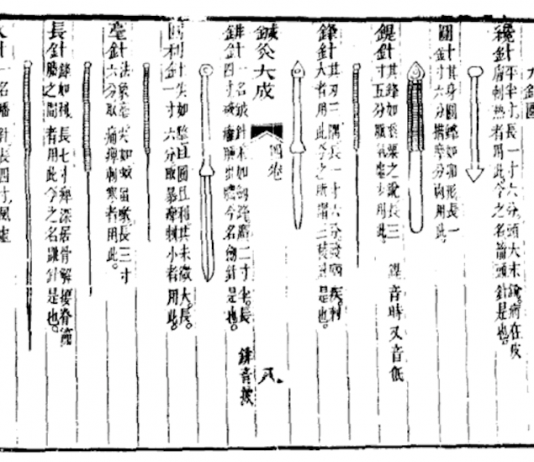 九針圖
鑱針
平半寸長一寸六分頭大末銳病在皮
膚刺熱者用此今之名箭頭針是也
圓針
其身圓鋒如卵形長一
寸六分揩摩分肉用此
鍉針
其鋒如黍粟之銳長三
寸五分脉氣虛少用此
鍉音時又音低
鋒針
其刃三隅長一寸六分發痼疾刺
大者用此今之所謂三稜針是也
鍼灸大成
四卷
八
鈹針
一名鈹針末如劍鋒廣二寸半長
四寸破癰腫出膿今名劍針是也
鈹音披
員利針
尖如氂且圓且利其末微大長
一寸六分取暴痺刺小者用此
毫針
法象毫尖如蚊虻喙長三寸
六分取痛痺刺寒者用此
長針
鋒如利長七寸痺深居骨解腰脊節
腠之間者用此今之名跳針是也
火針
一名燔針長四寸風虛